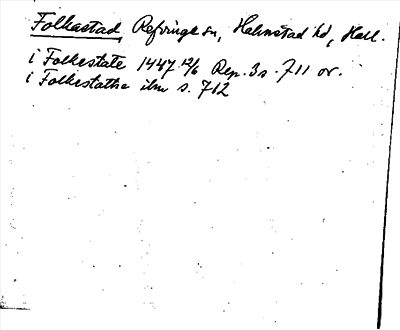 Folkastad, Refvinge sn, Halmstad hd, Hall.
i Folkestate 1447 12/6 Rep. 3 s. 711 or.
i Folkestathe ibm s. 712